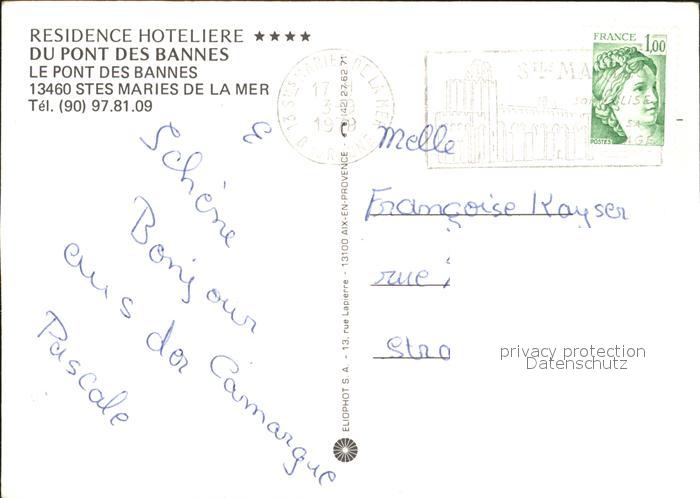 RESIDENCE HOTELIERE ★★★★
DU PONT DES BANNES
LE PONT DES BANNES
13460 STES MARIES DE LA MER
Tél. (90) 97.81.09
E Schöne
Bonjour
aus der Camargue
Pascale
ELIOPHOT S. A. - 13, rue Lapierre - 13100 AIX-EN-PROVENCE - (42) 27-62 71
13 STES MARIES DE LA MER
17
FRANCE
1,00
POSTES
Melle
Françoise Kayser
rue
Stra
privacy protection
Datenschutz